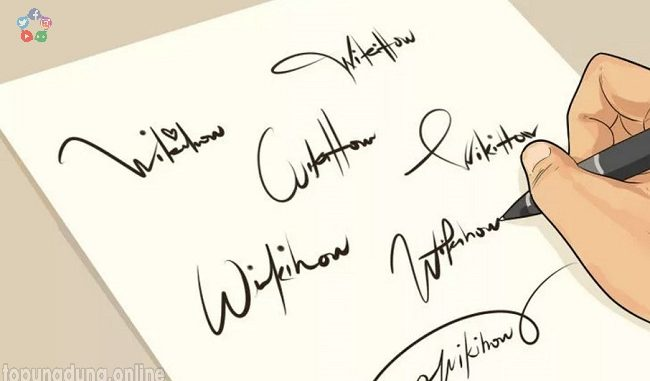 WikiHow
Wikihow
WikiHow
WikiHow
Wikihow
Wikihow
Wikihow
topungdung.online